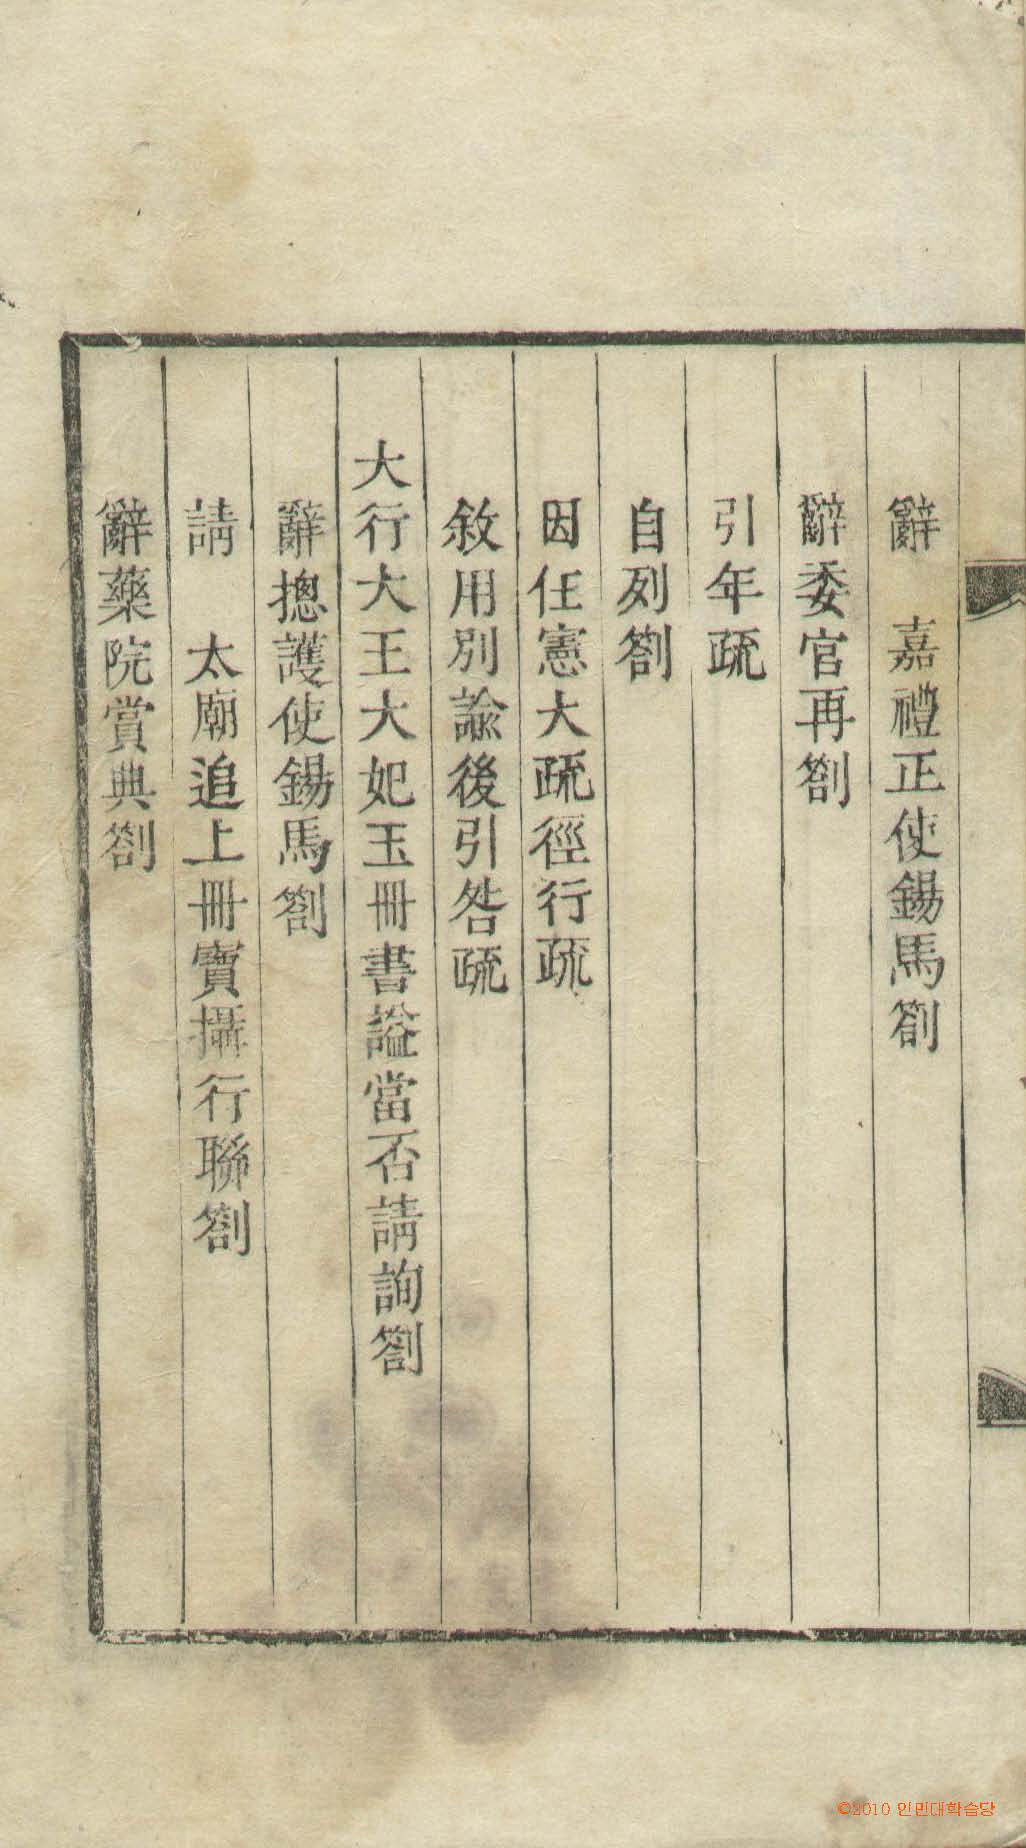 辭　嘉禮正使錫馬劄
辭委官再劄
引年疏
自列劄
因任憲大疏徑行疏
敘用別諭後引咎疏
大行大王大妃玉冊書諡當否請詢劄
辭摠護使錫馬劄
請　太廟追上冊寶攝行聯劄
辭藥院賞典劄
©2010 인민대학습당